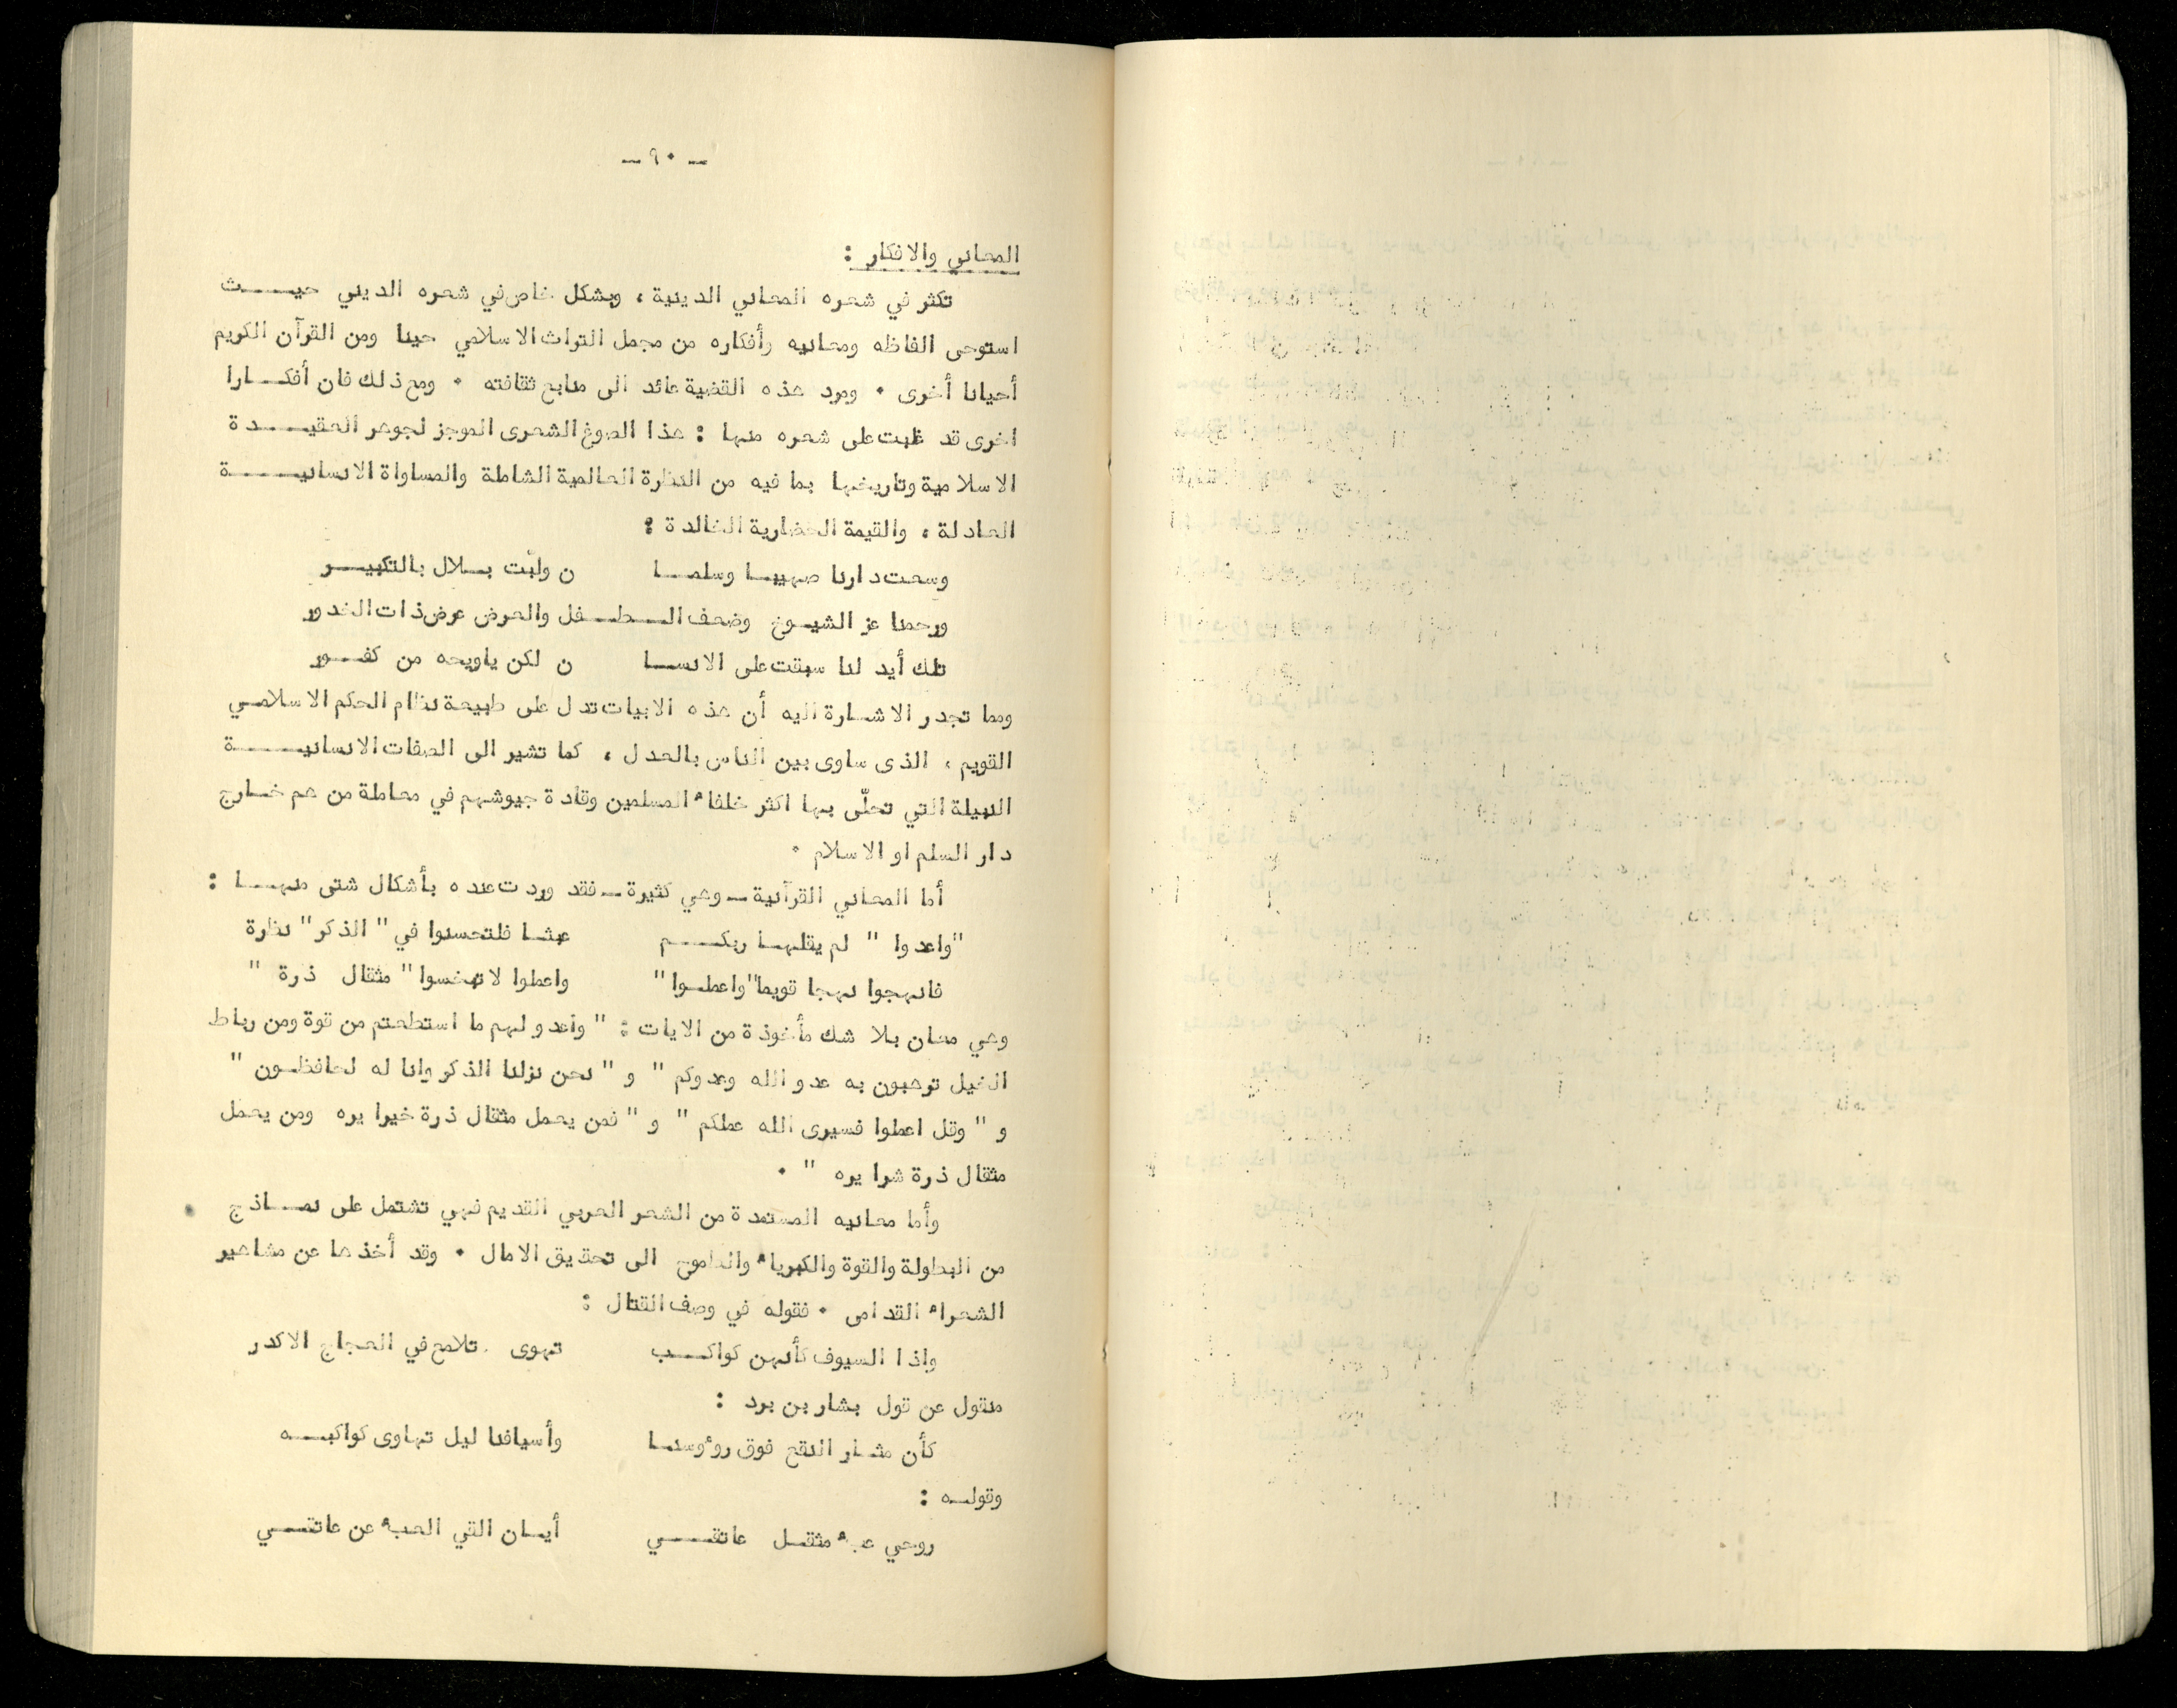 - ٩٠ -
المعاني والافكار :
تكثر في شعره المعاني الدينية ، وبشكل خاص في شعره الديني حيث
استوحى الفاظه ومعانيه وأفكاره من مجمل التراث الاسلامي حينا ومن القرآن الكريم
أحيانا أخرى . ومرد هذه القضية عائد الى منابع ثقافته . ومع ذلك فان أفكارا
اخرى قد غلبت على شعره منها : هذا الصوغ الشعرى الموجز لجوهر العقيدة
الاسلامية وتاريخها بما فيه من النظرة العالمية الشاملة والمساواة الانسانية
العادلة ، والقيمة الحضارية الخالدة :
وسعت دارنا صهيبا وسلما ن ولبّت بلال بالتكبير
ورحمنا عز الشيوخ وضعف الطفل والعرض عرض ذات الخدور
تلك أيد لنا سبقت على الانسا ن لكن ياويحه من كفور
ومما تجدر الاشارة اليه أن هذه الابيات تدل على طبيعة نظام الحكم الاسلامي
القويم ، الذى ساوى بين الناس بالعدل ، كما تشير الى الصفات الانسانية
النبيلة التي تحلّى بها اكثر خلفاء المسلمين وقادة جيوشهم في معاملة من هم خارج
دار السلم او الاسلام .
أما المعاني القرآنية - وهي كثيرة - فقد وردت عنده بأشكال شتى منها :
"واعدوا " لم يقلها ربكم عبثا فلتحسنوا في " الذكر " نظرة
فانهجوا نهجا قويما "واعملوا" واعملوا لا تبخسوا " مثقال ذرة "
وهي معان بلا شك مأخوذة من الايات : " وأعدو لهم ما استطعتم من قوة ومن رباط
الخيل ترهبون به عدو الله وعدوكم " و " نحن نزلنا الذكر وانا له لحافظون "
و " وقل اعملوا فسيرى الله عملكم " و " فمن يعمل مثقال ذرة خيرا يره ومن يعمل
مثقال ذرة شرا يره " .
وأما معانيه المستمدة من الشعر العربي القديم فهي تشتمل على نماذج
من البطولة والقوة والكبرياء والطموح الى تحقيق الامال . وقد أخذها عن مشاهير
الشعراء القدامى . فقوله في وصف القتال :
واذا السيوف كأنهن كواكب تهوى تلامع في العجاج الاكدر
منقول عن قول بشار بن برد :
كأن مثار النقع فوق روءوسنا وأسيافنا ليل تهاوى كواكبه
وقوله :
روحي عبء مثقل عاتقي أيان القي العبء عن عاتقي